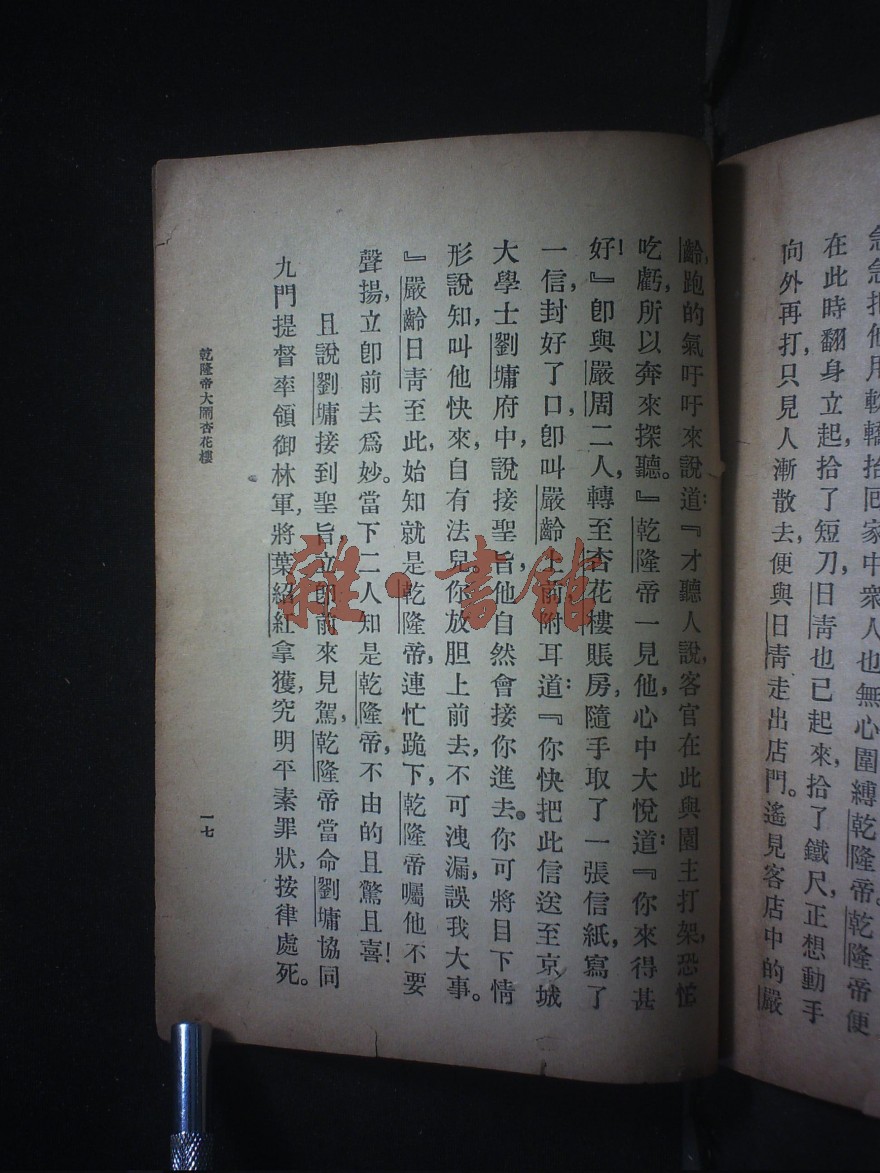 急急把他用軟轎抬囘家中衆人也無心圍縛乾隆帝。乾隆帝便
在此時翻身立起,拾了短刀,日靑也已起來,拾了鐵尺,正想動手
向外再打,只見人漸散去,便與日靑走出店門。遙見客店中的嚴
齡,跑的氣吁吁來說道:『才聽人說,客官在此與園主打架,恐怕
吃虧,所以奔來探聽。』乾隆帝一見他,心中大悅道:『你來得甚
好!』卽與嚴周二人,轉至杏花樓賬房,隨手取了一張信紙,寫了
一信,封好了口,卽叫嚴齡上前,附耳道:『你快把此信送至京城
大學士劉墉府中,說接聖旨,他自然會接你進去。你可將目下情
形說知,叫他快來,自有法兒,你放胆上前去,不可洩漏,誤我大事。
』嚴齡日靑至此,始知就是乾隆帝,連忙跪下,乾隆帝囑他不要
聲揚,立卽前去爲妙。當下二人知是乾隆帝,不由的且驚且喜!
且說劉墉接到聖旨,立卽前來見駕,乾隆帝當命劉墉協同
九門提督率領御林軍,將葉紹紅拿獲,究明平素罪狀,按律處死。
乾隆帝大鬧杏花樓
一七
雜·書館